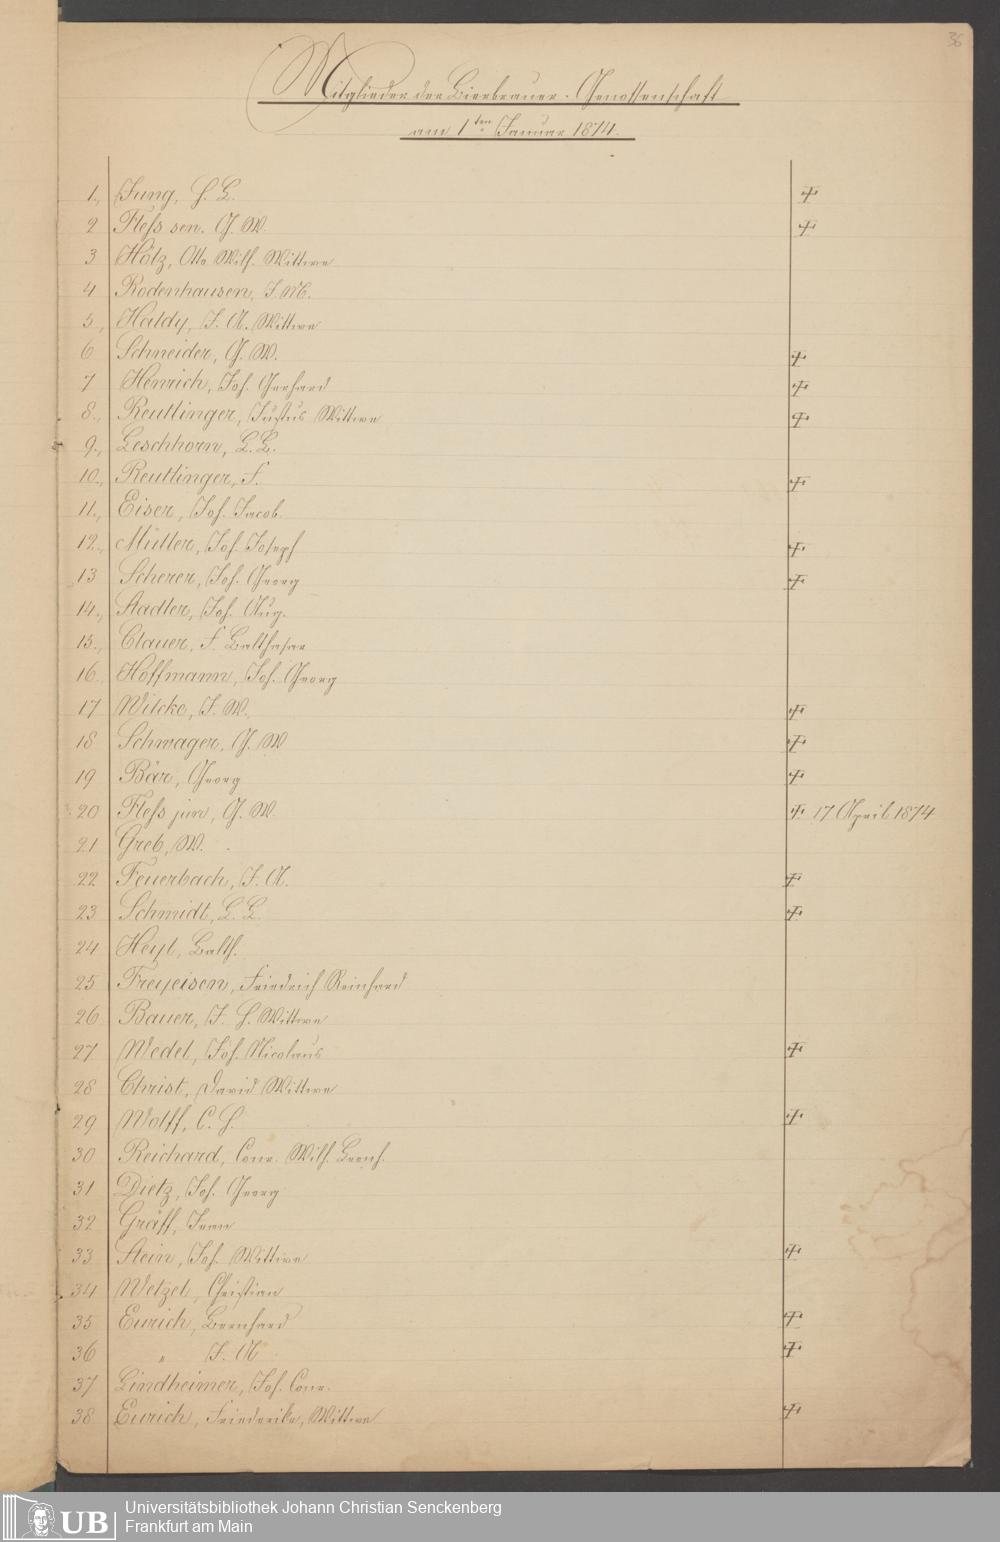 36
Mitglieder der Bierbrauer-Genossenschaft
am 1ten Januar 1874.
1., Jung, H. L. †
2 Fleſs sen. G. W. †
3 Hölz, Otto Wilh. Wittwe
4 Rodenhausen, J. M.
5, Haldy, J. A. Wittwe
6 Schneider, G. W. †
7 Henrich, Joh. Gerhard †
8., Reutlinger, Justus Wittwe †
9., Leschhorn, L. L.
10., Reutlinger, F. †
11., Eiser, Joh. Jacob.
12., Müller, Joh. Joseph †
13 Scherer, Joh. Georg †
14., Stadler, Joh. Aug.
15., Clauer, F. Balthasar
16. Hoffmann, Joh. Georg
17 Wilcke, J. W. †
18 Schwager, G. W †
19 Bär, Georg †
20 Fleſs jun, G. W. † 17 April 1874
21 Greb, W.
22 Feuerbach, J. A. †
23 Schmidt, L. L. †
24 Heyl, Balth.
25 Freyeisen, Friedrich Reinhard
26 Bauer, J. H. Wittwe
27 Wedel, Joh. Nicolaus †
28 Christ, David Wittwe
29 Wolff, C. H. †
30 Reichard, Conr. Wilh. Bernh.
31 Dietz, Joh. Georg
32 Gräff, Jean
33 Stein, Joh. Wittwe †
34 Wetzel, Christian
35 Eurich, Bernhard †
36 " J. A †
37 Lindheimer, Joh. Conr.
38 Eurich, Friederike, Wittwe †
UB
Universitätsbibliothek Johann Christian Senckenberg
Frankfurt am Main